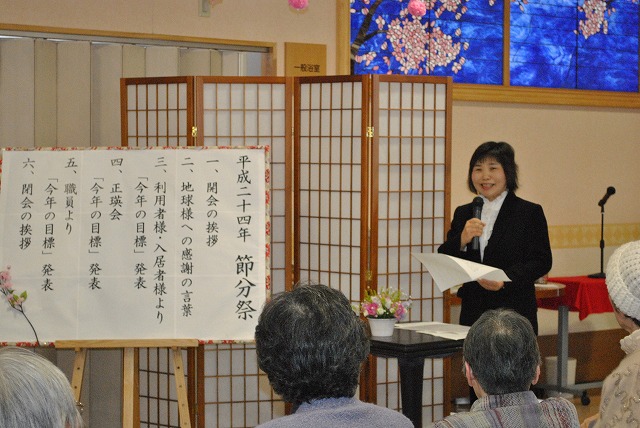 平成二十四年 節分祭
一、開会の挨拶
二、地球様への感謝の言葉
三、利用者様・入居者様より
「今年の目標」発表
四、正瑛会
「今年の目標」発表
五、職員より
「今年の目標」発表
六、閉会の挨拶
一般浴室